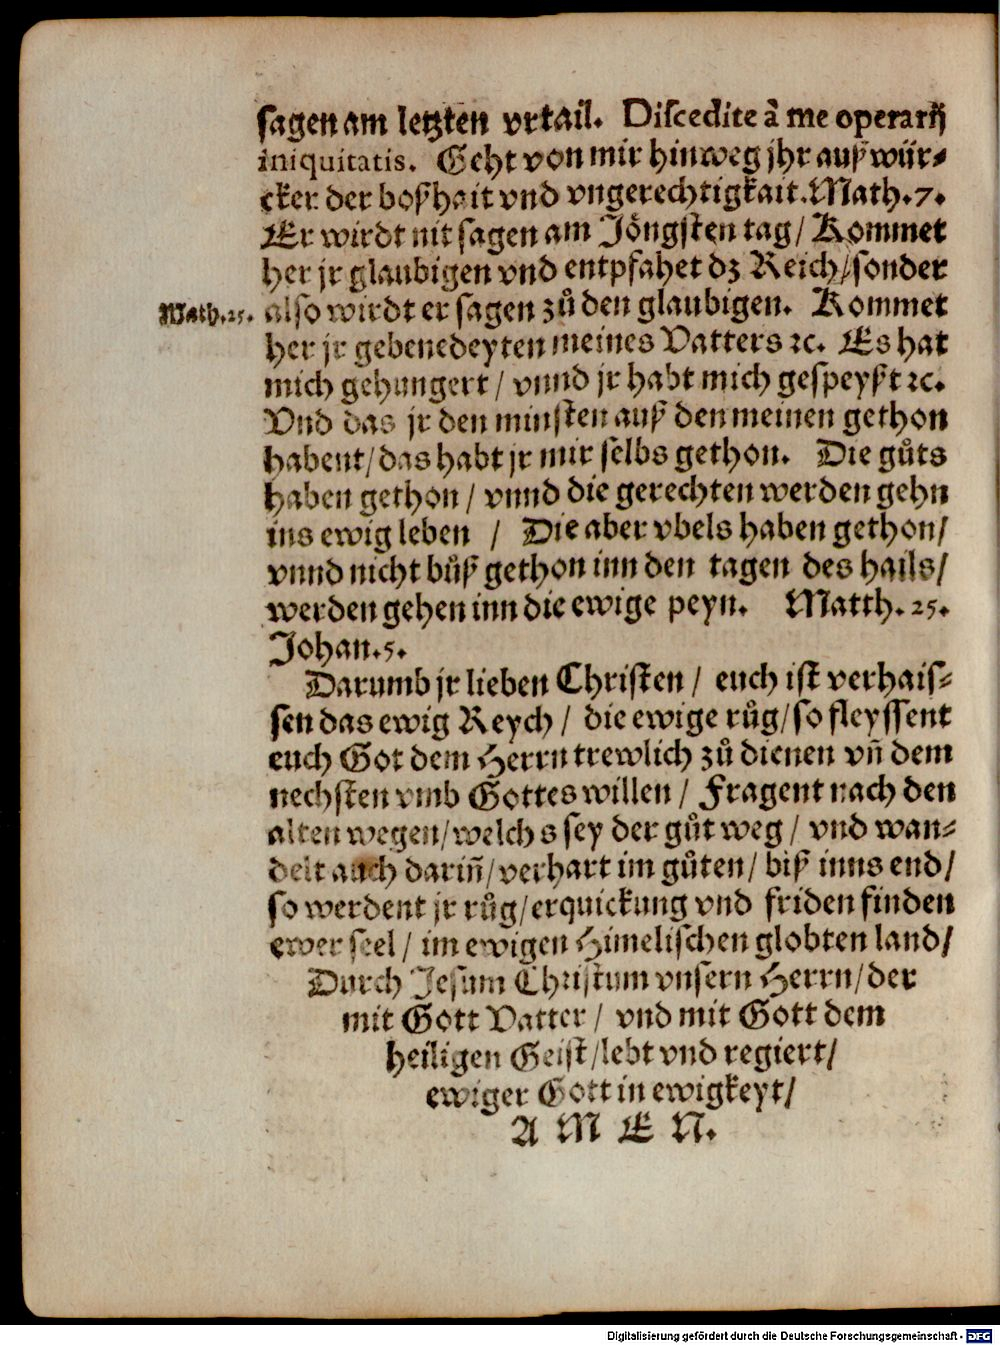 sagen am letzten vrtail. Discedite à me operarij
iniquitatis. Geht von mir hinweg jhr außwür⸗
cker der boßhait vnd vngerechtigkait. Math. 7.
Er wirdt nit sagen am Jöngsten tag / Kommet
her jr glaubigen vnd entpfahet dz Reich / sonder
Math. 25. also wirdt er sagen zů den glaubigen. Kommet
her jr gebenedeyten meines Vatters ꝛc. Es hat
mich gehungert / vnnd jr habt mich gespeyßt ꝛc.
Vnd das jr den minsten auß den meinen gethon
habent / das habt jr mir selbs gethon. Die gůts
haben gethon / vnnd die gerechten werden gehn
ins ewig leben / Die aber vbels haben gethon /
vnnd nicht bůß gethon inn den tagen des hails /
werden gehen inn die ewige peyn. Matth. 25.
Johan. 5.
Darumb jr lieben Christen / euch ist verhais⸗
sen das ewig Reych / die ewige růg / so fleyssent
euch Got dem Herrn trewlich zů dienen vñ dem
nechsten vmb Gottes willen / Fragent nach den
alten wegen / welchs sey der gůt weg / vnd wan⸗
delt auch dariñ / verhart im gůten / biß inns end /
so werdent jr růg / erquickung vnd friden finden
ewer seel / im ewigen Himelischen globten land /
Durch Jesum Christum vnsern Herrn / der
mit Gott Vatter / vnd mit Gott dem
heiligen Geist / lebt vnd regiert /
ewiger Gott in ewigkeyt /
A M E N.
Digitalisierung gefördert durch die Deutsche Forschungsgemeinschaft - DFG